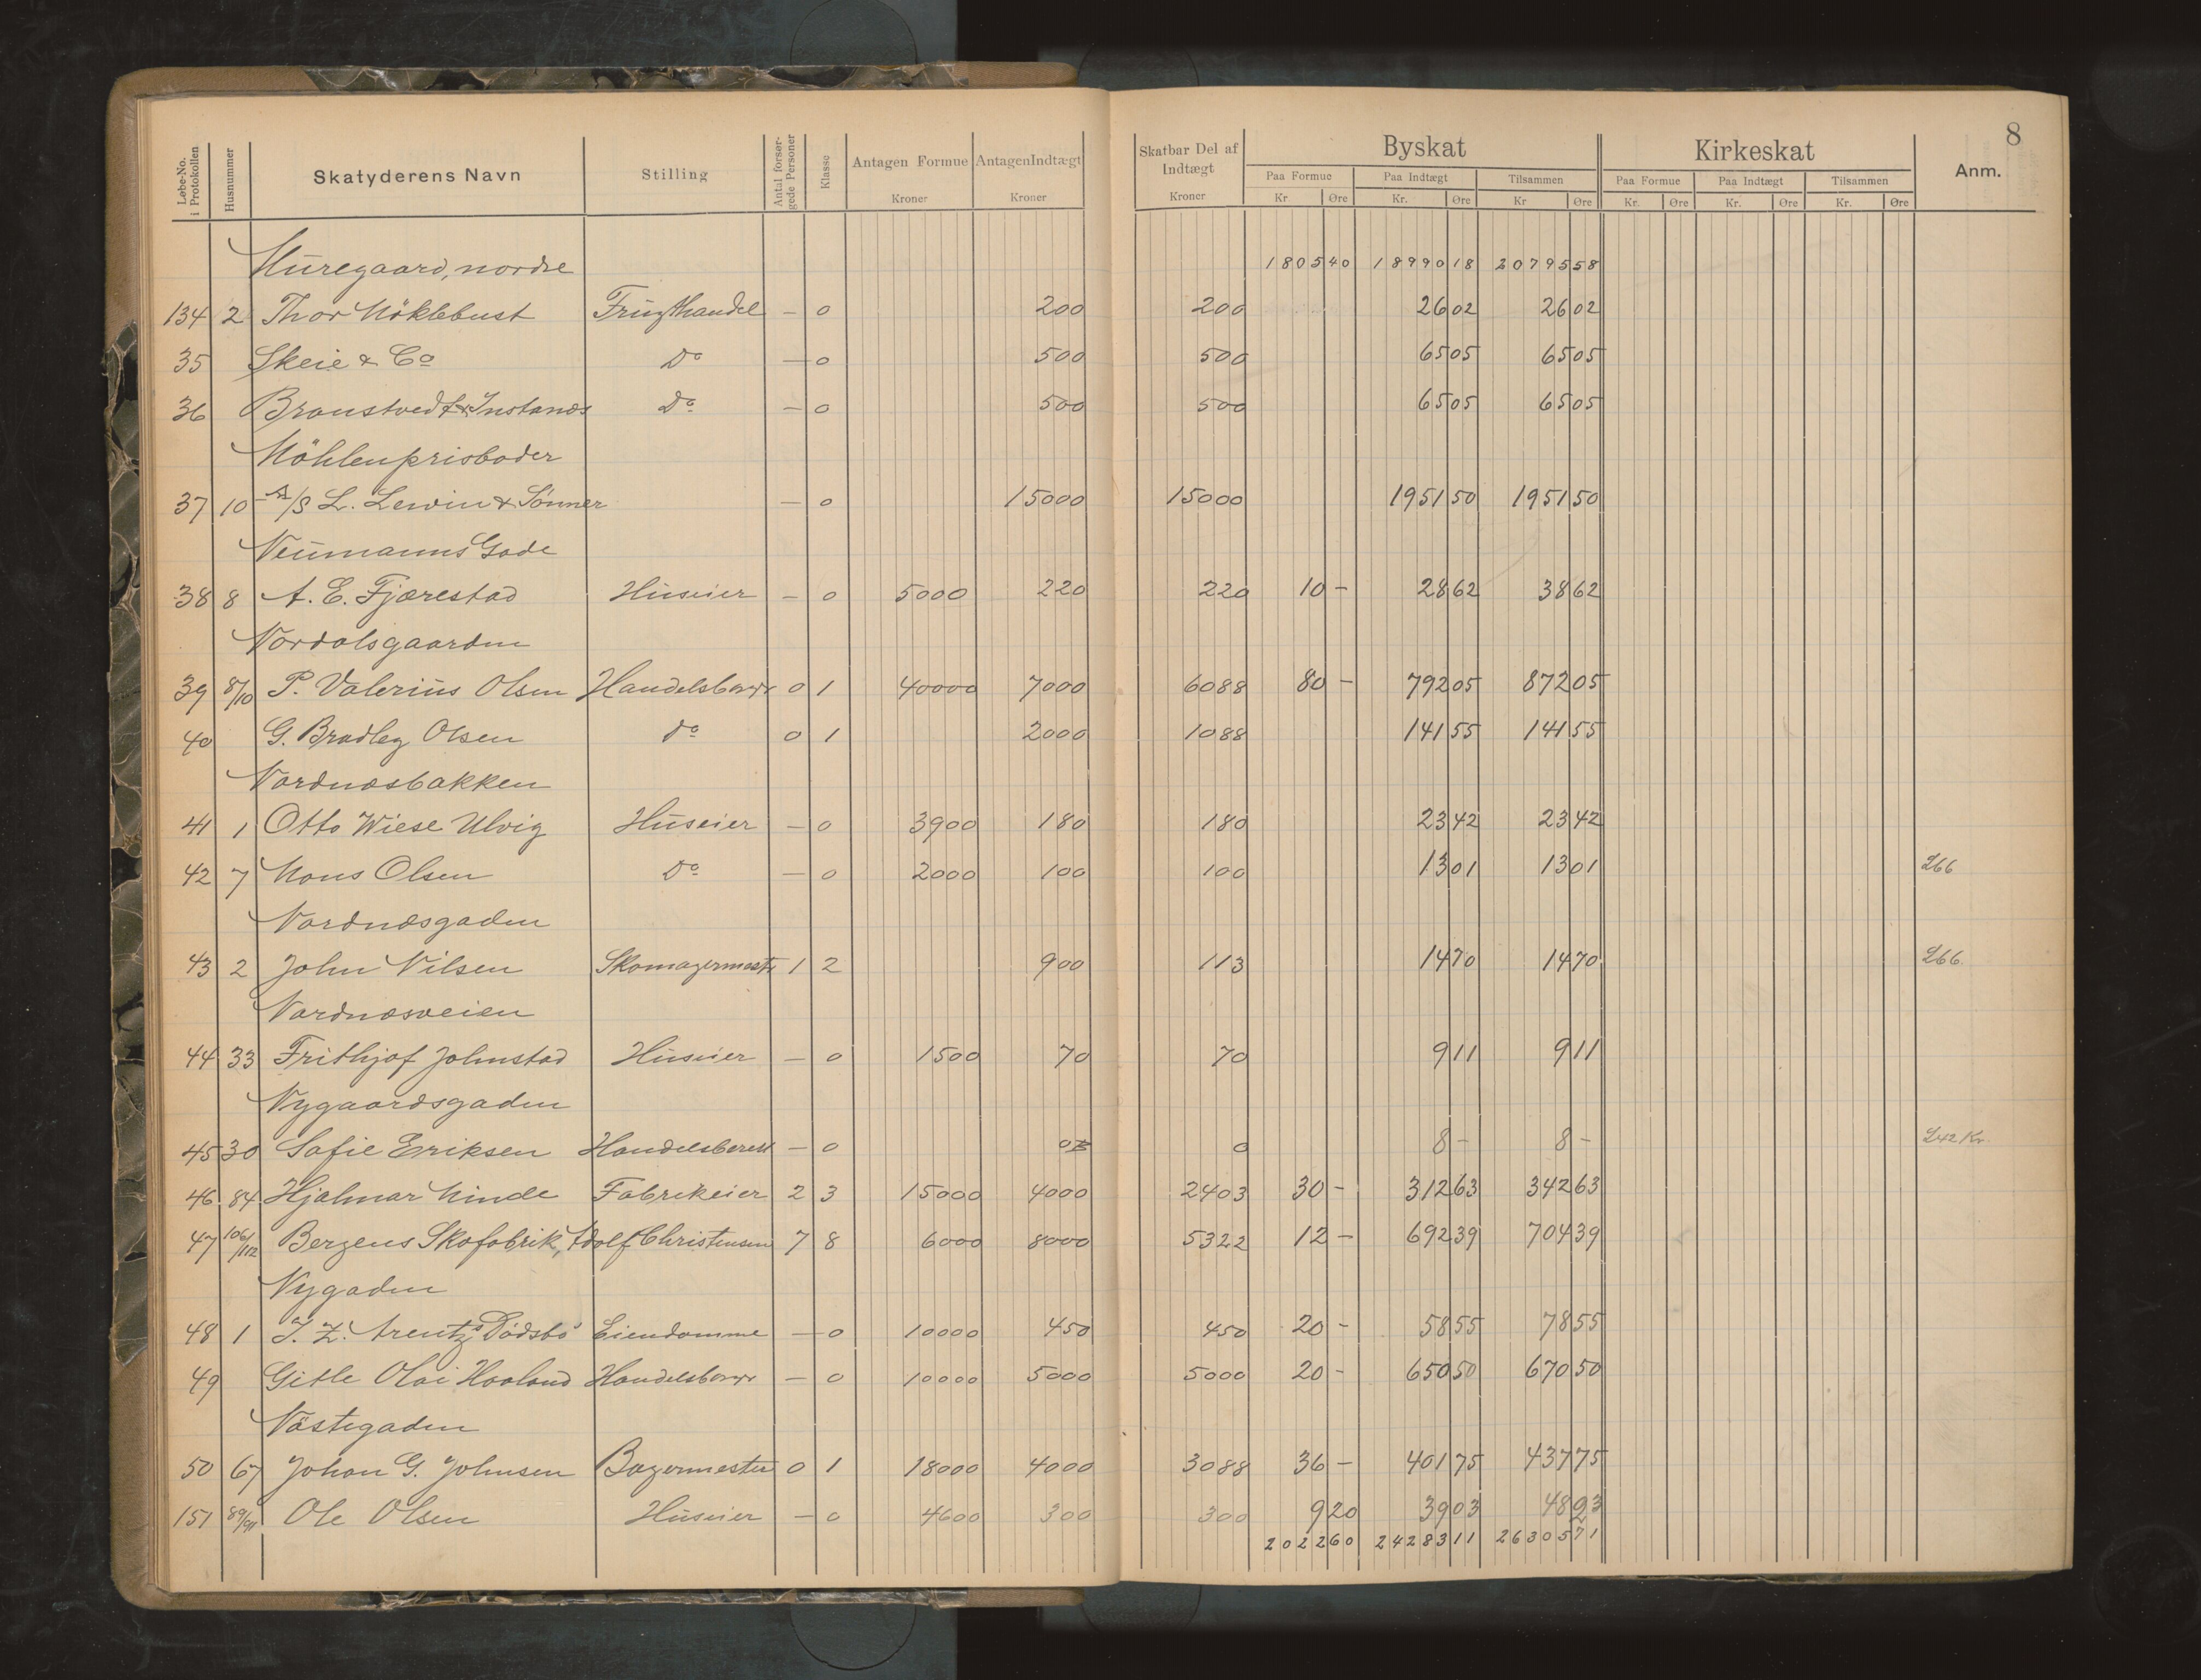 8
Løbe-No. i Protokollen Husnummer Skatyderens Navn Stilling Antal forsørgede Personer Klasse Antagen Formue Kroner Antagen Indtægt Kroner Skatbar Del af Indtægt Kroner Byskat Kirkeskat Anm.
Paa Formue Paa Indtægt Tilsammen Paa Formue Paa Indtægt Tilsammen
Kr Øre Kr. Øre Kr Øre Kr. Øre Kr. Øre Kr. Øre
Muregaard, nordre 1805 40 18990 18 20795 58
134 2 Thor Möklebust Frugthandel — 0 200 200 26 02 26 02
35 Skeie & Co Do — 0 500 500 65 05 65 05
36 Branstvedt & Instanæs Do — 0 500 500 65 05 65 05
Möhlenprisboder
37 10 A/S L. Lewin & Sønner — 0 15000 15000 1951 50 1951 50
Neumanns Gade
38 8 A. E. Fjærestad Huseier — 0 5000 220 220 10 — 28 62 38 62
Nordalsgaarden
39 8/10 P. Valerius Olsen Handelsborgr 0 1 40000 7000 6088 80 — 792 05 872 05
40 G. Bradley Olsen do 0 1 2000 1088 141 55 141 55
Nordnæsbakken
41 1 Otto Wiese Ulvig Huseier — 0 3900 180 180 23 42 23 42
42 7 Mons Olsen Do — 0 2000 100 100 13 01 13 01 266
Nordnæsgaden
43 2 John Nilsen Skomagermestr 1 2 900 113 14 70 14 70 266.
Nordnæsveien
44 33 Frithjof Johnstad Huseier — 0 1500 70 70 9 11 9 11
Nygaardsgaden
45 30 Sofie Eriksen Handelsberett — 0 0 0 8 — 8 — 242 Kr.
46 84 Hjalmar Minde Fabrikeier 2 3 15000 4000 2403 30 — 312 63 342 63
47 106/112 Bergens Skofabrik, Adolf Christensen 7 8 6000 8000 5322 12 — 692 39 704 39
Nygaden
48 1 J. Z. Arentz's Dødsbo Eiendomme — 0 10000 450 450 20 — 58 55 78 55
49 Gitle Olai Haaland Handelsborgr — 0 10000 5000 5000 20 — 650 50 670 50
Nøstegaden
50 67 Johan G. Johnsen Bagermester 0 1 18000 4000 3088 36 — 401 75 437 75
151 89/91 Ole Olsen Huseier — 0 4600 300 300 9 20 39 03 48 23
2022 60 24283 11 26305 71